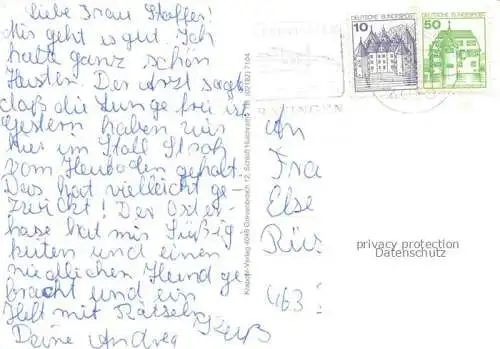 Liebe Frau Stoffer!
Mir geht es gut. Ich
hatte ganz schön
Husten. Der Arzt sagt
daß die Lunge frei ist.
Gestern haben wir
hier im Stall Stroh
vom Heuboden geholt.
Das hat vielleicht ge-
zwickt! Der Oster-
hase hat mir Süßig
keiten und einen
niedlichen Hund ge
bracht und ein
Heft mit Rätseln
Deine Andrea
DEUTSCHE BUNDESPOST
10
DEUTSCHE BUNDESPOST
50
RATINGEN
An
Fra
Else
Rüs
463
privacy protection
Datenschutz